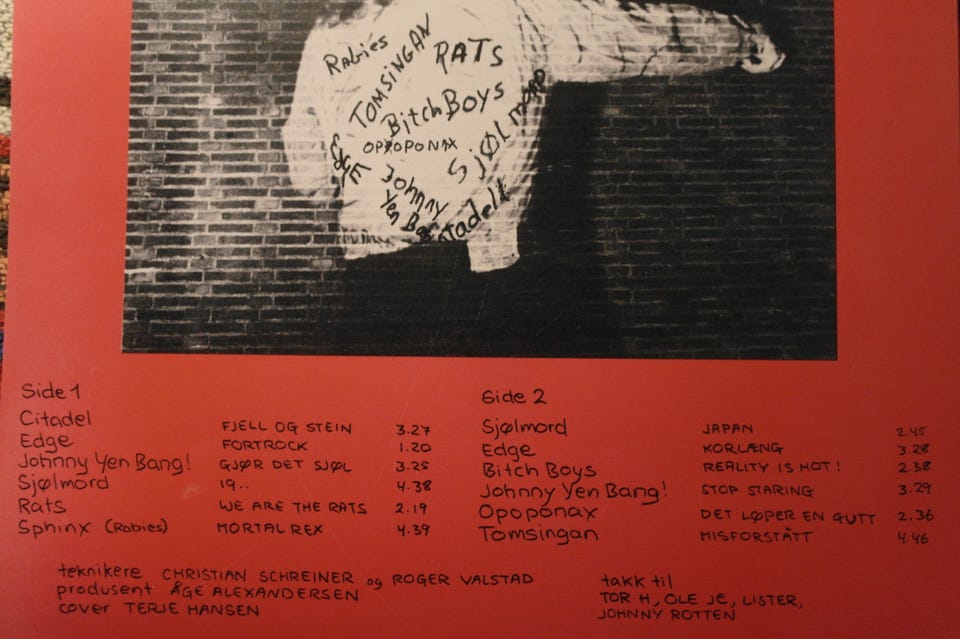 Rabies
TOMSINGAN
RATS
BitchBoys
OPOPONAX
SjØLMORD
EDGE
Johnny
Yen Ba
Side 1
Citadel FJELL OG STEIN 3.27
Edge FORTROCK 1.20
Johnny Yen Bang! GJØR DET SJØL 3.25
Sjølmord 19.. 4.38
Rats WE ARE THE RATS 2.19
Sphinx (Rabies) MORTAL REX 4.39
Side 2
Sjølmord JAPAN 2.45
Edge KORLÆNG 3.28
Bitch Boys REALITY IS HOT! 2.38
Johnny Yen Bang! STOP STARING 3.29
Opoponax DET LØPER EN GUTT 2.36
Tomsingan MISFORSTÅTT 4.46
teknikere CHRISTIAN SCHREINER og ROGER VALSTAD
produsent ÅGE ALEXANDERSEN
cover TERJE HANSEN
takk til
TOR H, OLE JE, LISTER,
JOHNNY ROTTEN